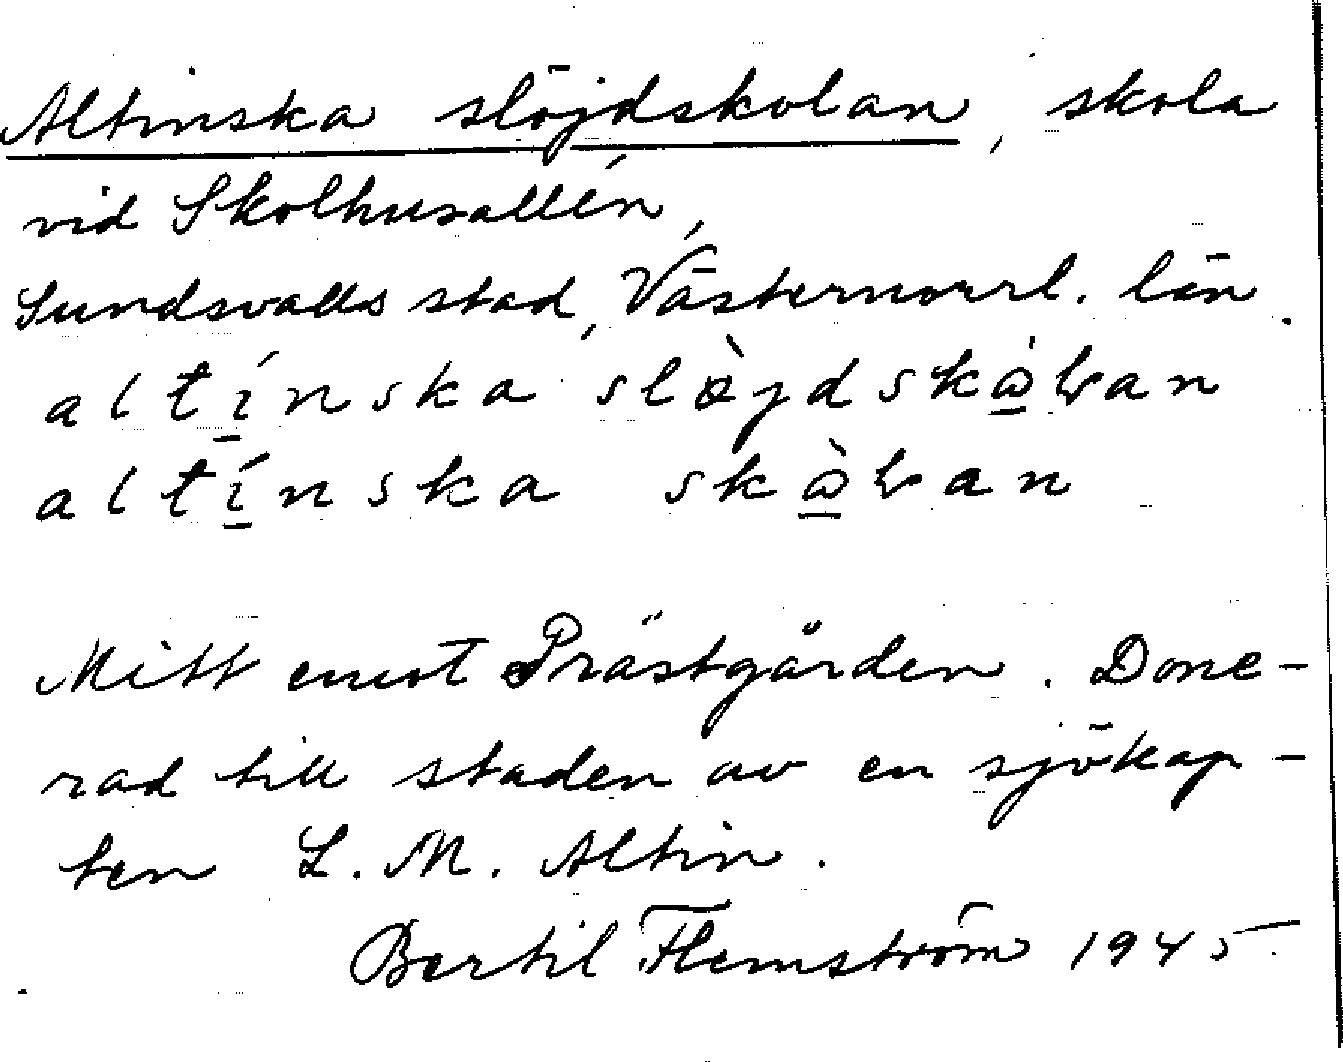 Altinska slöjdskolan, skola
vid Skolhusallén,
Sundsvalls stad, Västernorrl. län.
altí̱nska slòjdskὼ̱ɽan
altí̱nska skὼ̱ɽan
Mitt emot Prästgården. Done-
rad till staden av en sjökap-
ten L. M. Altin.
Bertil Flemström 1945.